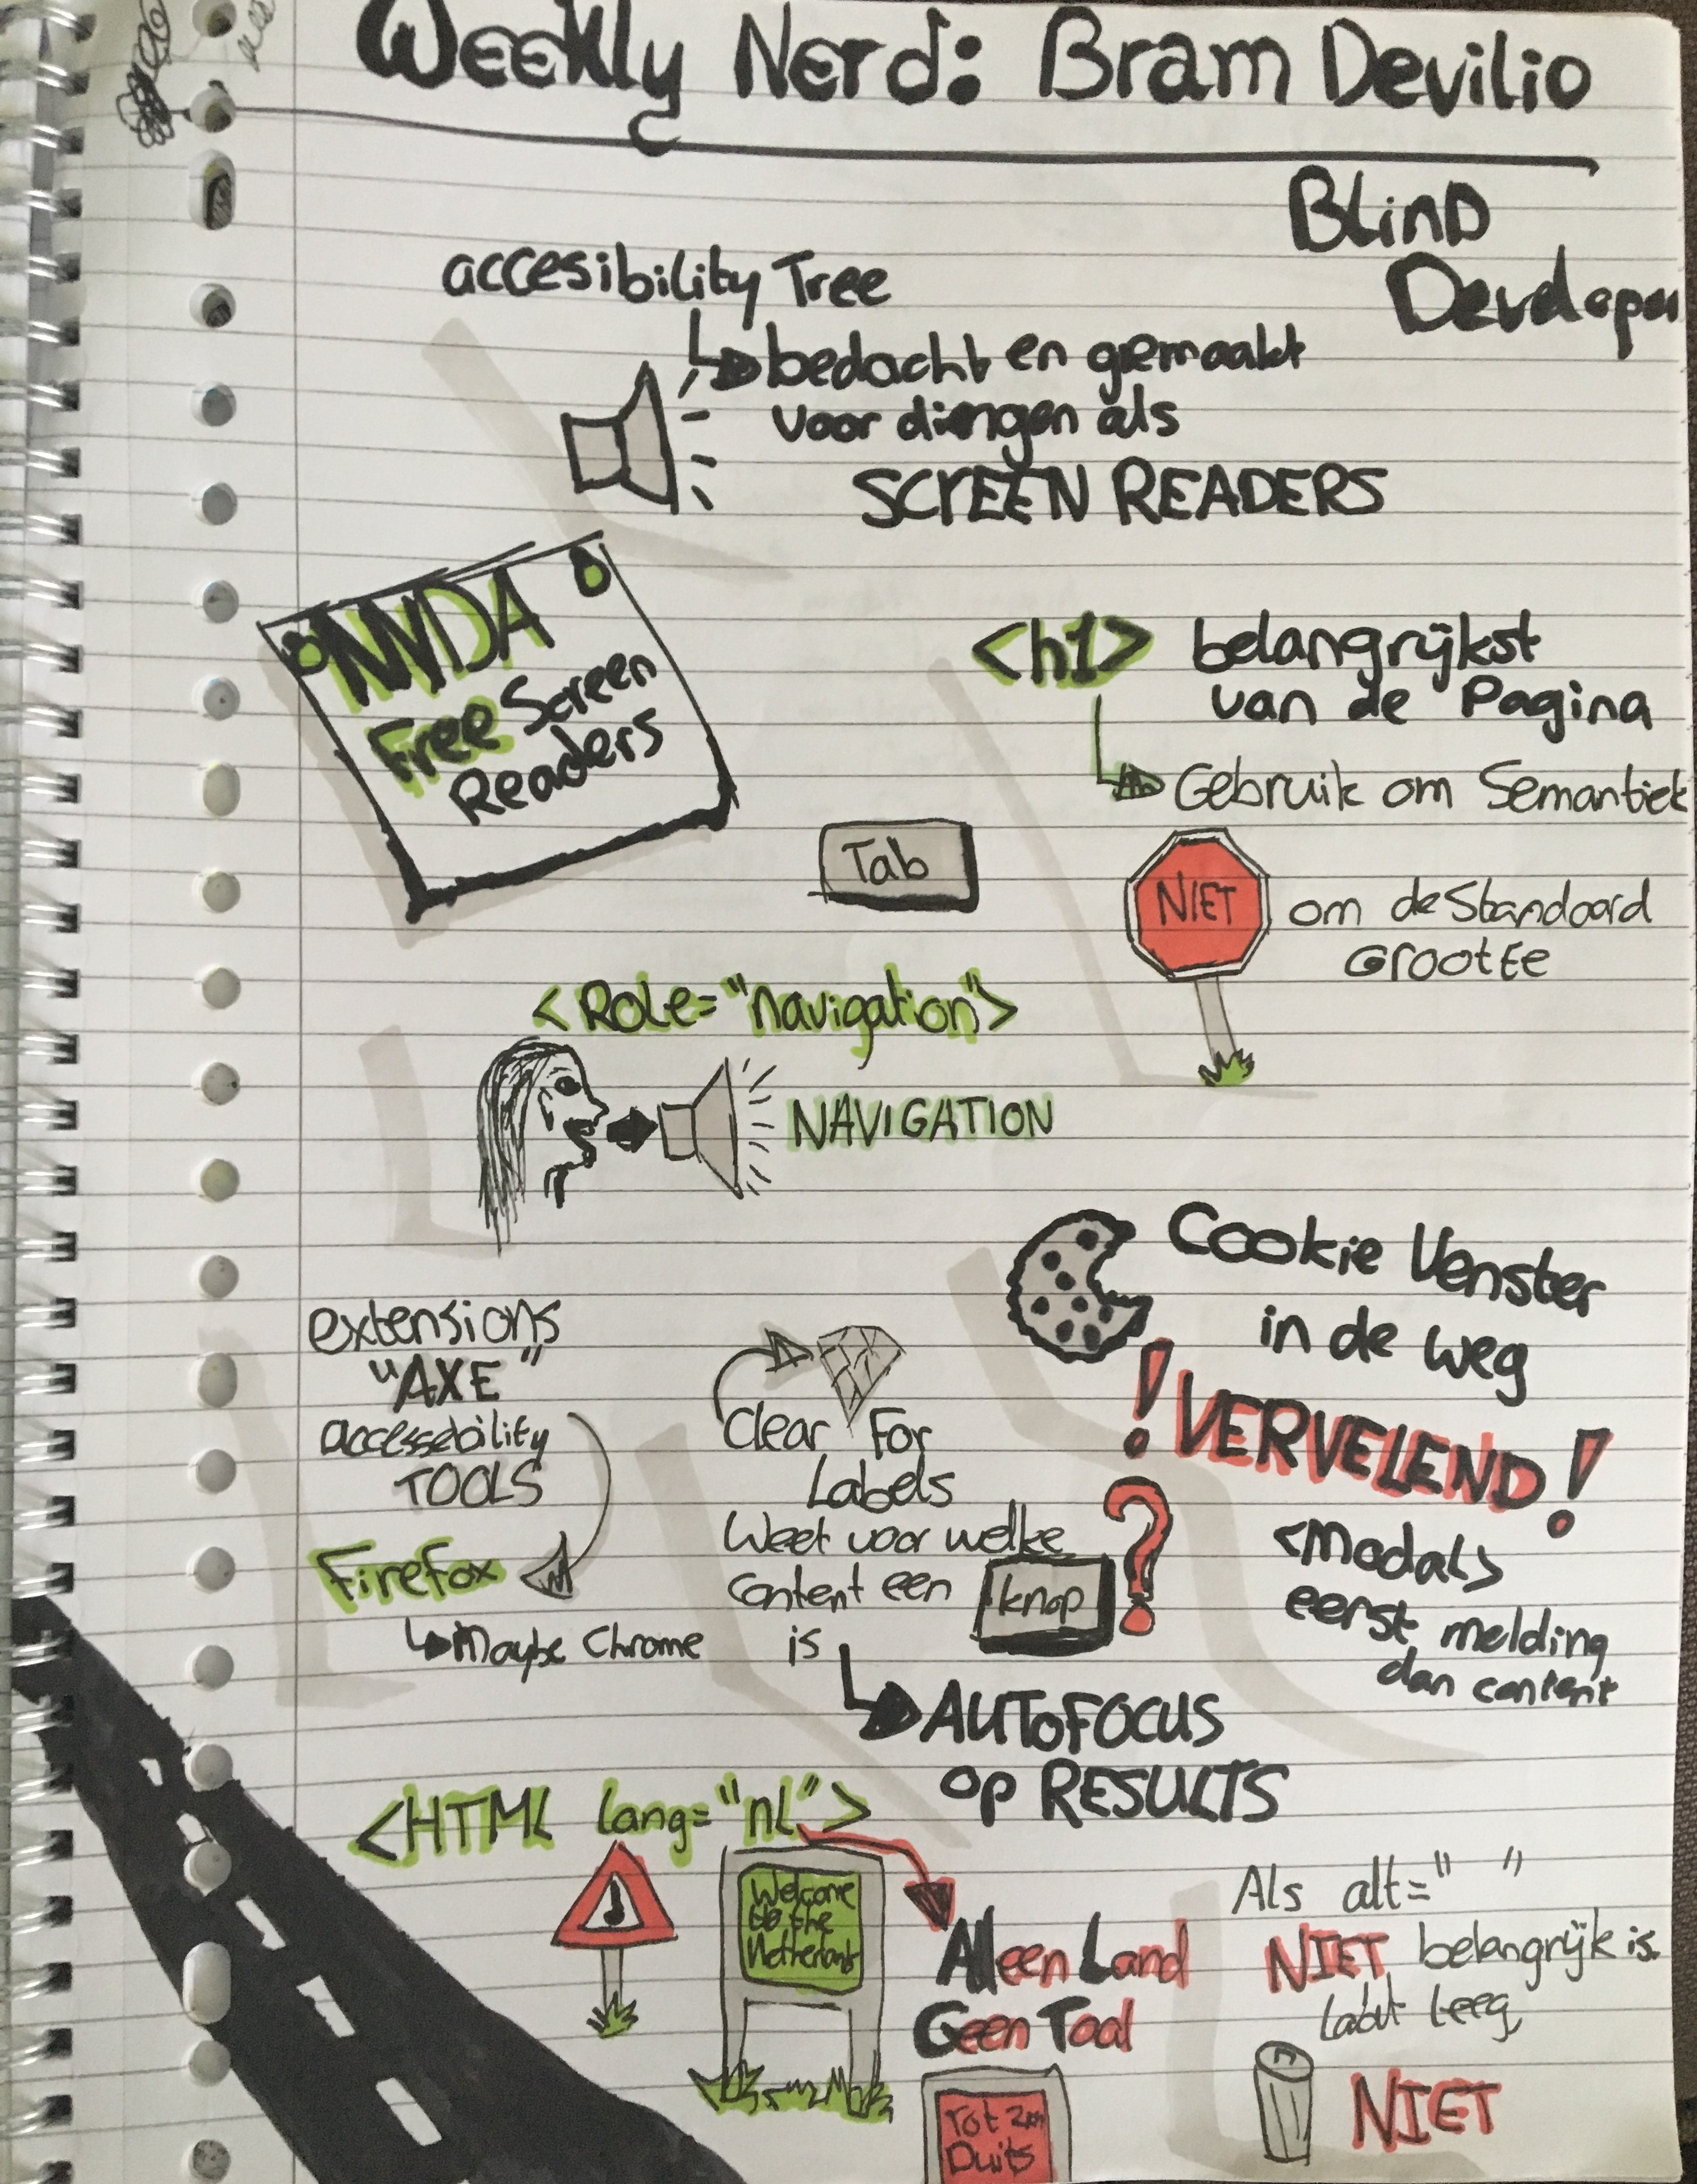 Weekly Nerd: Bram Devilio
Blind
Developer
accesibility Tree
bedacht en gemaakt
voor diengen als
SCREEN READERS
NVDA
Free Screen
Readers
<h1> belangrijkst
van de Pagina
Gebruik om Semantiek
Tab
NIET om de Standaard
Grootte
<Role="navigation">
NAVIGATION
Cookie Venster
in de weg
! VERVELEND !
<modal>
eerst melding
dan content
extensions
"AXE"
accessebility
TOOLS
Firefox
Maybe Chrome
Clear For
Labels
Weet voor welke
Content een knop ?
is
AUTOFOCUS
op RESULTS
<HTML lang="nl">
Welcome
to the
Alleen Land
Geen Taal
Als alt=" "
NIET belangrijk is
leeg
NIET
Tot
Duits